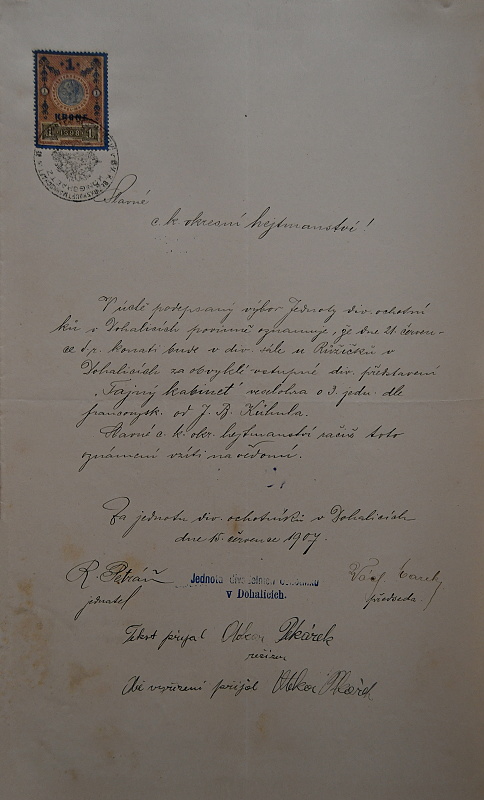 1
KRONE
1898
Slavné
c. k. okresní hejtmanství!
V úctě podepsaný výbor Jednoty div. ochotní
ků v Dohalicích povinně oznamuje, že dne 21. červen-
ce t. r. konati bude v div. sále u Růžičků v
Dohalicích za obvyklé vstupné div. představení
„Tajný kabinet" veselohra o 3. jedn. dle
francouzsk. od J. B. Kühnla.
Slavné c. k. okr. hejtmanství račiž toto
oznámení vzíti na vědomí.
Za jednotu div. ochotníků v Dohalicích
dne 15. července 1907.
R. Petráň
Jednota divadelních ochotníků
v Dohalicích.
jednatel
předseda.
Tekst přijal Otakar Pekárek
režisér
Bez vyřízení přijal Otakar Pekárek